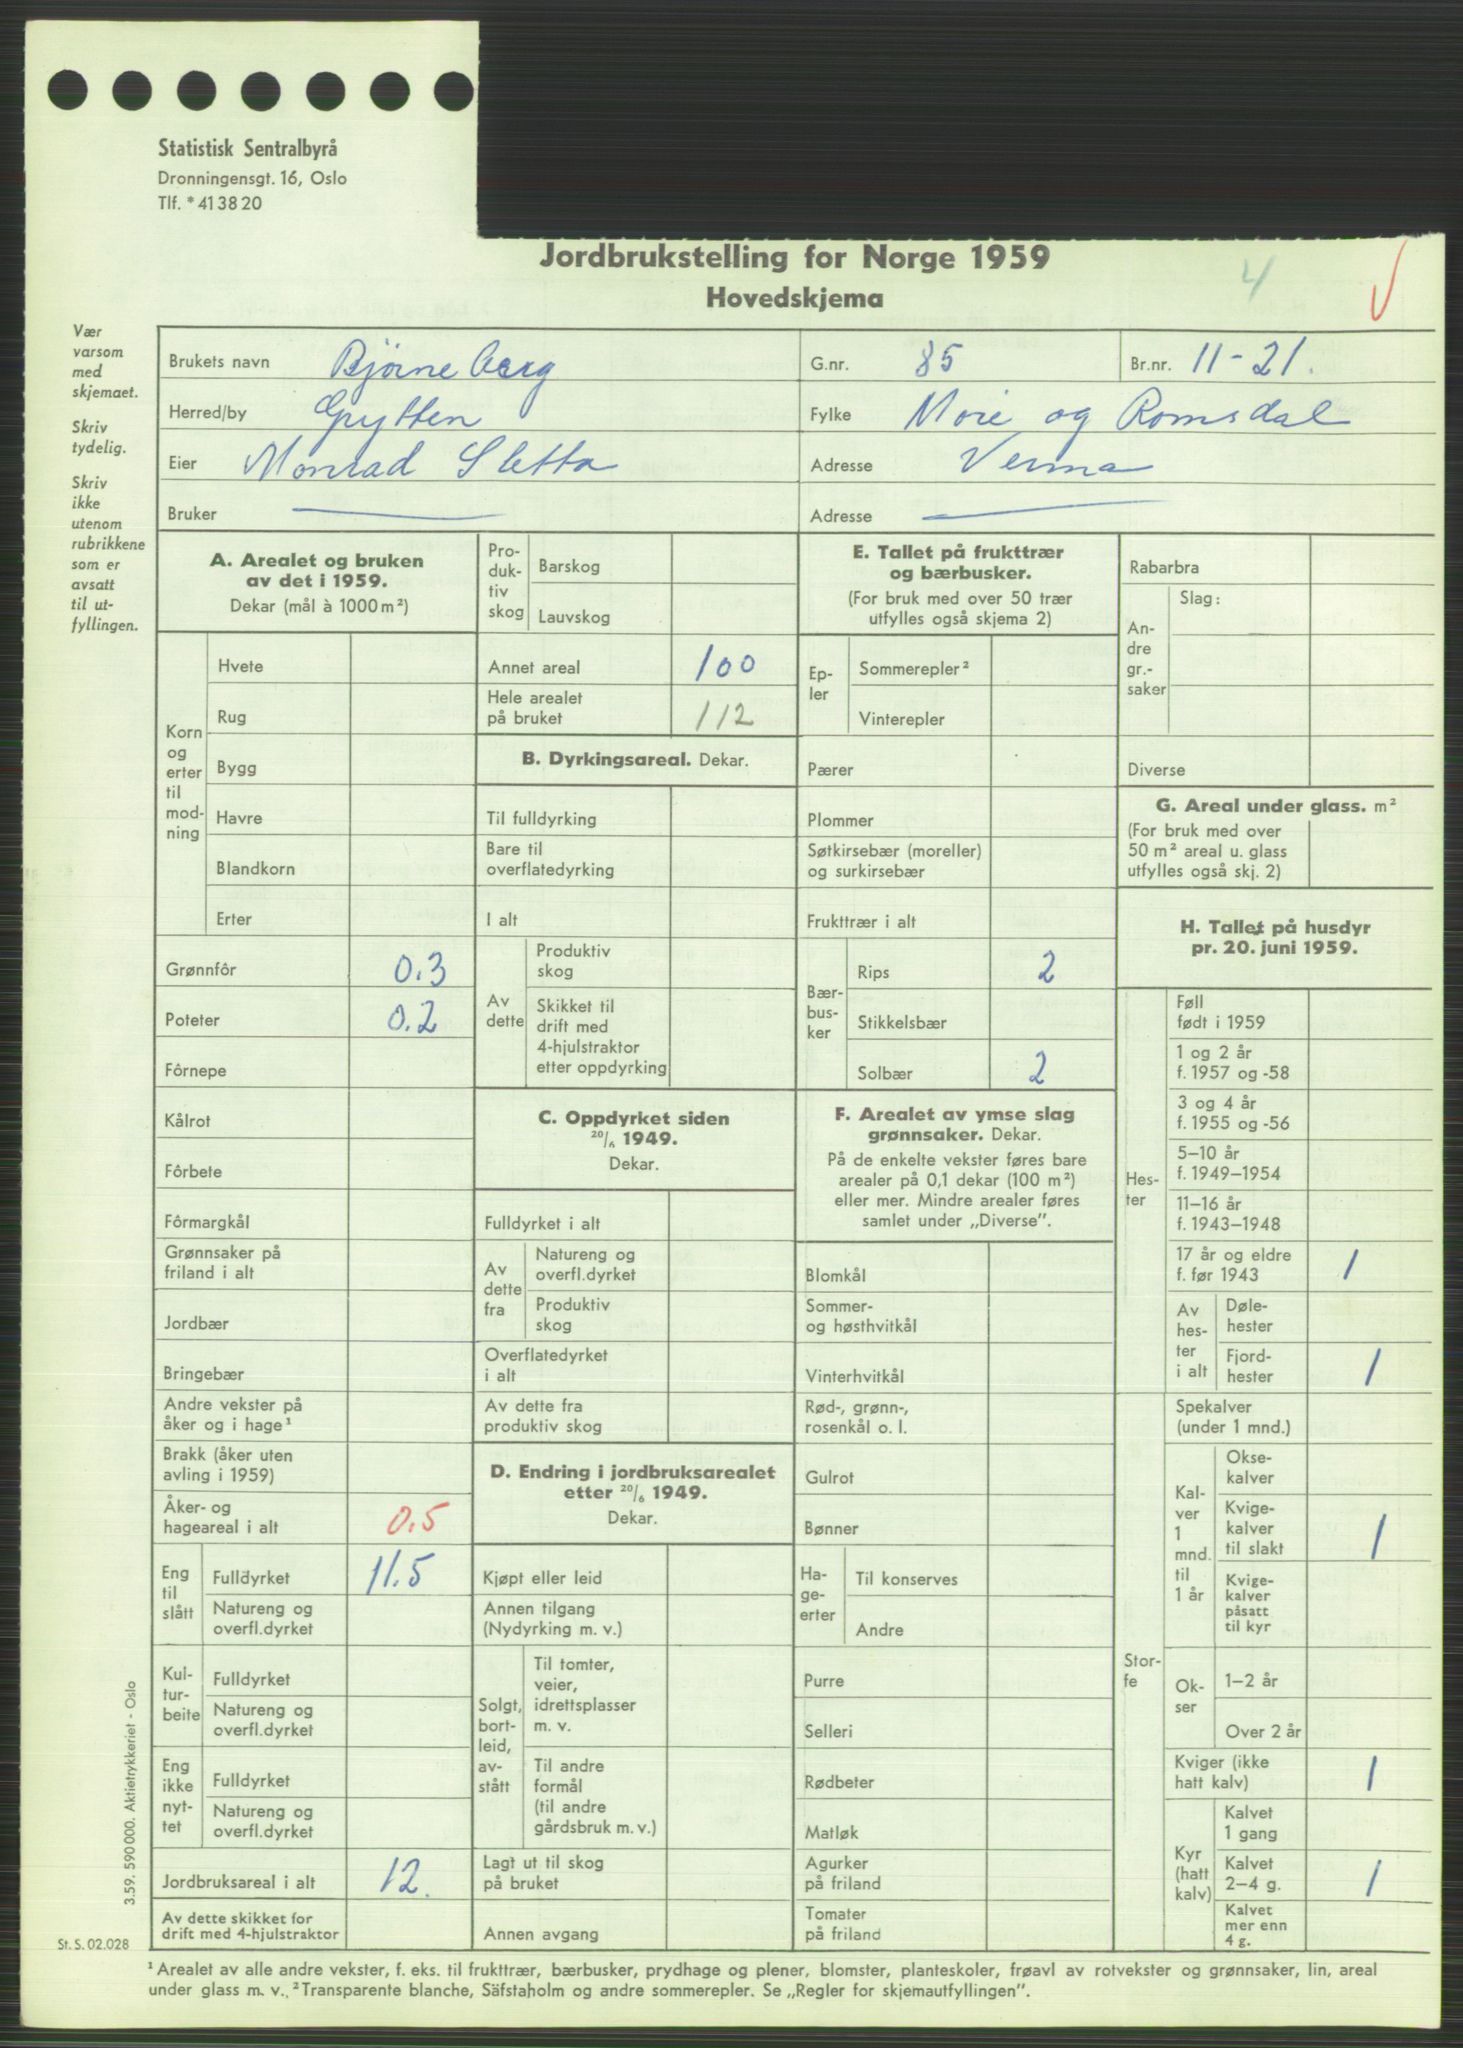 Statistisk Sentralbyrå
Dronningensgt. 16, Oslo
Tlf. * 41 38 20
Jordbrukstelling for Norge 1959
Hovedskjema
4
Vær
varsom
med
skjemaet.
Skriv
tydelig.
Skriv
ikke
utenom
rubrikkene
som er
avsatt
til ut-
fyllingen.
Brukets navn Bjørneberg
G.nr. 85 Br.nr. 11-21.
Herred/by Grytten
Fylke Møre og Romsdal
Eier Monrad Sletta
Adresse Verma
Bruker
Adresse
A. Arealet og bruken
av det i 1959.
Dekar (mål à 1000 m²)
Korn
og
erter
til
mod-
ning
Hvete
Rug
Bygg
Havre
Blandkorn
Erter
Grønnfôr 0.3
Poteter 0.2
Fôrnepe
Kålrot
Fôrbete
Fôrmargkål
Grønnsaker på
friland i alt
Jordbær
Bringebær
Andre vekster på
åker og i hage¹
Brakk (åker uten
avling i 1959)
Åker- og
hageareal i alt 0.5
Eng
til
slått
Fulldyrket 11.5
Natureng og
overfl.dyrket
Kul-
tur-
beite
Fulldyrket
Natureng og
overfl.dyrket
Eng
ikke
nyt-
tet
Fulldyrket
Natureng og
overfl.dyrket
Jordbruksareal i alt 12.
Av dette skikket for
drift med 4-hjulstraktor
Pro-
duk-
tiv
skog
Barskog
Lauvskog
Annet areal 100
Hele arealet
på bruket 112
B. Dyrkingsareal. Dekar.
Til fulldyrking
Bare til
overflatedyrking
I alt
Av
dette
Produktiv
skog
Skikket til
drift med
4-hjulstraktor
etter oppdyrking
C. Oppdyrket siden
20/6 1949.
Dekar.
Fulldyrket i alt
Av
dette
fra
Natureng og
overfl.dyrket
Produktiv
skog
Overflatedyrket
i alt
Av dette fra
produktiv skog
D. Endring i jordbruksarealet
etter 20/6 1949.
Dekar.
Kjøpt eller leid
Annen tilgang
(Nydyrking m. v.)
Solgt,
bort-
leid,
av-
stått
Til tomter,
veier,
idrettsplasser
m. v.
Til andre
formål
(til andre
gårdsbruk m. v.)
Lagt ut til skog
på bruket
Annen avgang
E. Tallet på frukttrær
og bærbusker.
(For bruk med over 50 trær
utfylles også skjema 2)
Ep-
ler
Sommerepler²
Vinterepler
Pærer
Plommer
Søtkirsebær (moreller)
og surkirsebær
Frukttrær i alt
Bær-
bus-
ker
Rips 2
Stikkelsbær
Solbær 2
F. Arealet av ymse slag
grønnsaker. Dekar.
På de enkelte vekster føres bare
arealer på 0,1 dekar (100 m²)
eller mer. Mindre arealer føres
samlet under „Diverse”.
Blomkål
Sommer-
og høsthvitkål
Vinterhvitkål
Rød-, grønn-,
rosenkål o. l.
Gulrot
Bønner
Ha-
ge-
erter
Til konserves
Andre
Purre
Selleri
Rødbeter
Matløk
Agurker
på friland
Tomater
på friland
Rabarbra
An-
dre
gr.-
saker
Slag:
Diverse
G. Areal under glass. m²
(For bruk med over
50 m² areal u. glass
utfylles også skj. 2)
H. Tallet på husdyr
pr. 20. juni 1959.
Hes-
ter
Føll
født i 1959
1 og 2 år
f. 1957 og -58
3 og 4 år
f. 1955 og -56
5–10 år
f. 1949–1954
11–16 år
f. 1943–1948
17 år og eldre
f. før 1943 1
Av
hes-
ter
i alt
Døle-
hester
Fjord-
hester 1
Stor-
fe
Spekalver
(under 1 mnd.)
Kal-
ver
1
mnd.
til
1 år
Okse-
kalver
Kvige-
kalver
til slakt 1
Kvige-
kalver
påsatt
til kyr
Ok-
ser
1–2 år
Over 2 år
Kviger (ikke
hatt kalv) 1
Kyr
(hatt
kalv)
Kalvet
1 gang
Kalvet
2–4 g. 1
Kalvet
mer enn
4 g.
3.59. 590 000. Aktietrykkeriet - Oslo
St. S. 02.028
¹ Arealet av alle andre vekster, f. eks. til frukttrær, bærbusker, prydhage og plener, blomster, planteskoler, frøavl av rotvekster og grønnsaker, lin, areal
under glass m. v. ² Transparente blanche, Säfstaholm og andre sommerepler. Se „Regler for skjemautfyllingen”.